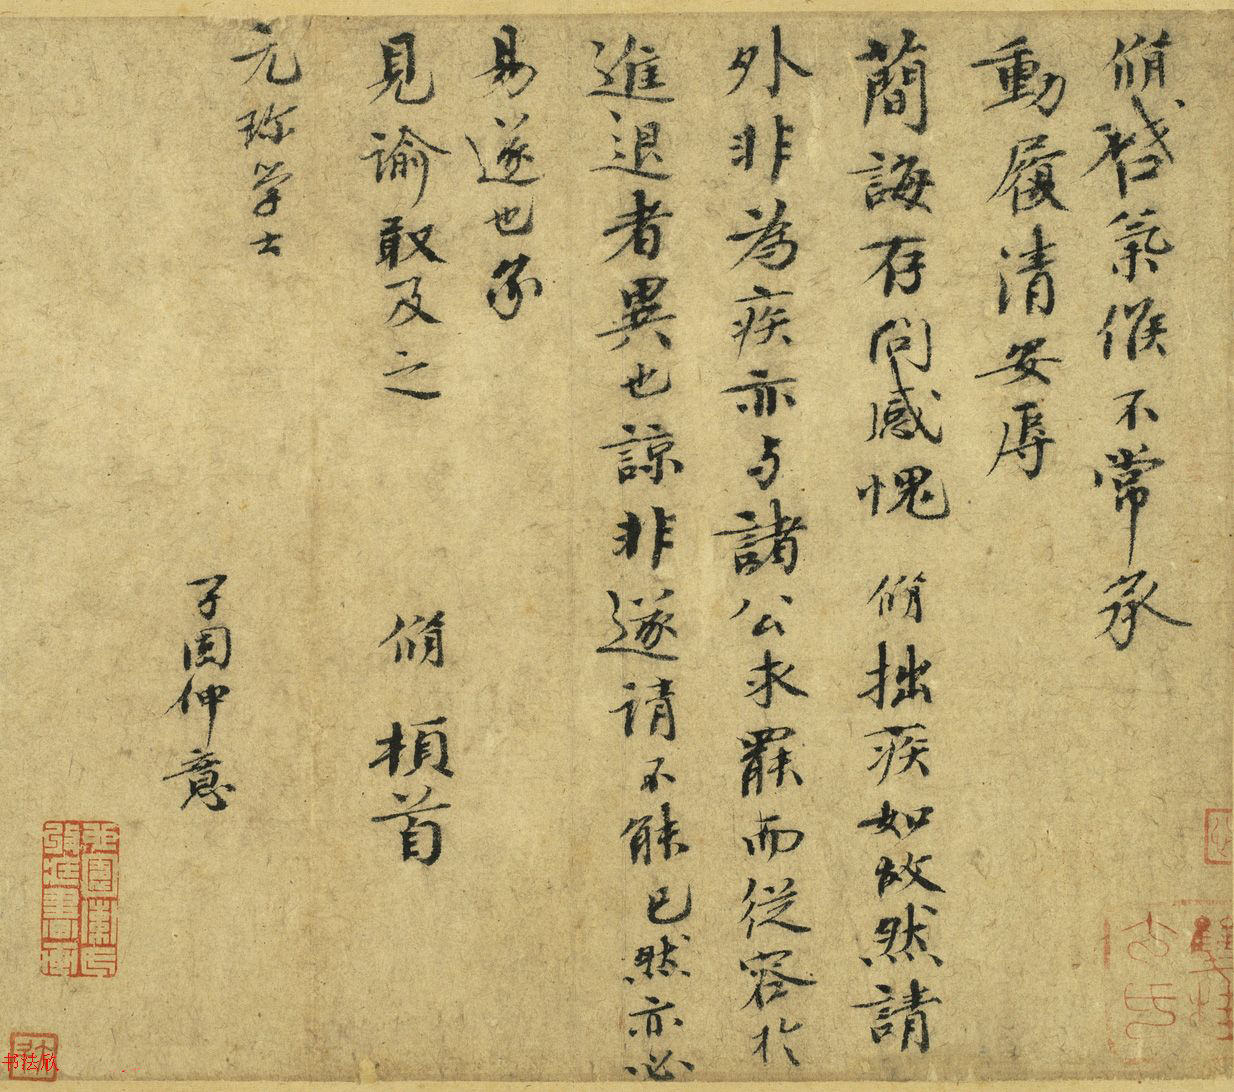 脩啓氣候不常承
動履清安辱
簡誨存問感愧 脩拙疾如故然請
外非為疾亦与諸公求罷而從容於
進退者異也諒非遂請不能已然亦必
易遂也承
見諭敢及之
脩 頓首
元珍学士
子固仲意
书法欣